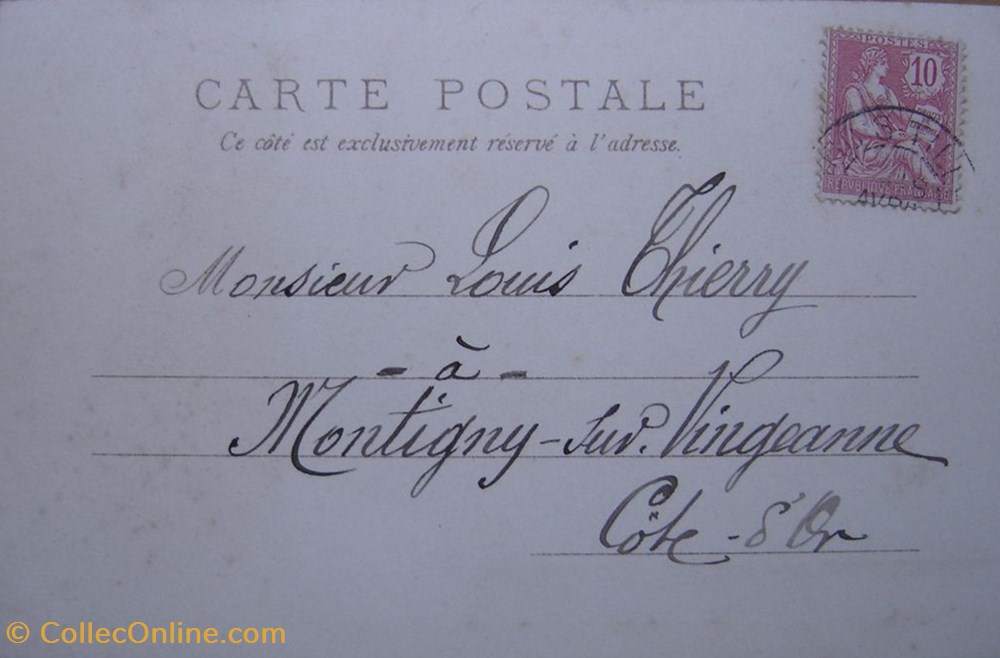 POSTES
10
RÉPUBLIQUE FRANÇAISE
CARTE POSTALE
Ce côté est exclusivement réservé à l'adresse.
Monsieur Louis Thierry
- à -
Montigny-sur-Vingeanne
Côte-d'Or
© CollecOnline.com